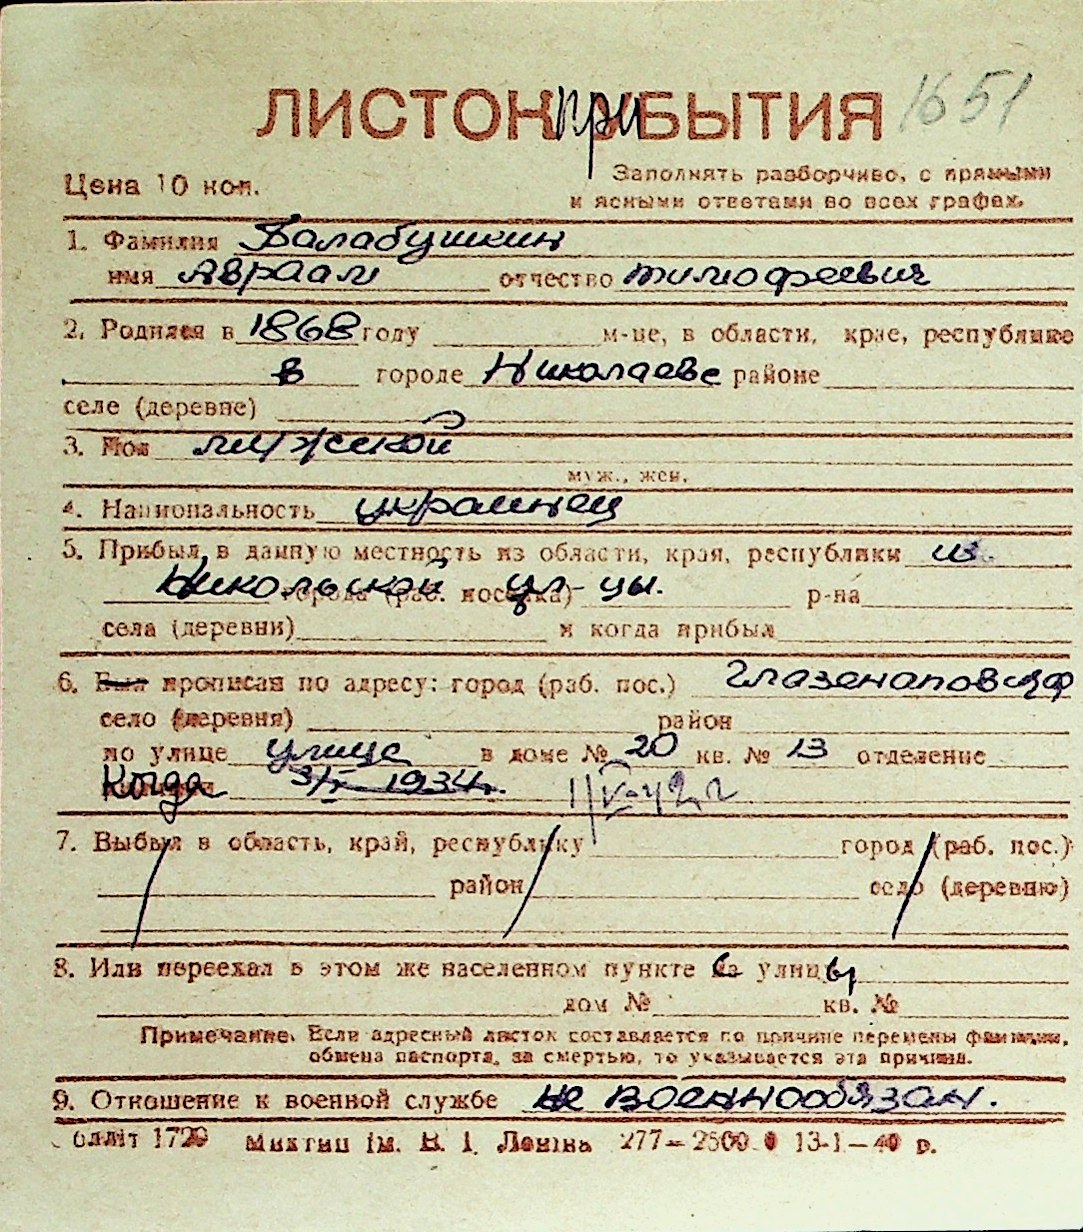 ЛИСТОК ПРИБЫТИЯ 1651
Цена 10 коп.
Заполнять разборчиво, с прямыми
и ясными ответами во всех графах.
1. Фамилия Балабушкин
имя Авраам отчество Тимофеевич
2. Родился в 1868 году м-це, в области, крае, республике
в городе Николаеве районе
селе (деревне)
3. Пол мужской
муж., жен.
4. Национальность украинец
5. Прибыл в данную местность из области, края, республики из
Никольской города (раб. поселка) ул-цы. р-на
села (деревни) и когда прибыл
6. Был прописан по адресу: город (раб. пос.) Глазенаповская
село (деревня) район
по улице улице в доме № 20 кв. № 13 отделение
Когда 3/I 1934г. 1/V-42 г
7. Выбыл в область, край, республику город (раб. пос.)
район село (деревню)
8. Или переехал в этом же населенном пункте с улицы
дом № кв. №
Примечание. Если адресный листок составляется по причине перемены фамилии,
обмена паспорта, за смертью, то указывается эта причина.
9. Отношение к военной службе не военнообязан.
Облліт 1729 Миктип ім. В. І. Леніна 277—2500 13-1—40 р.